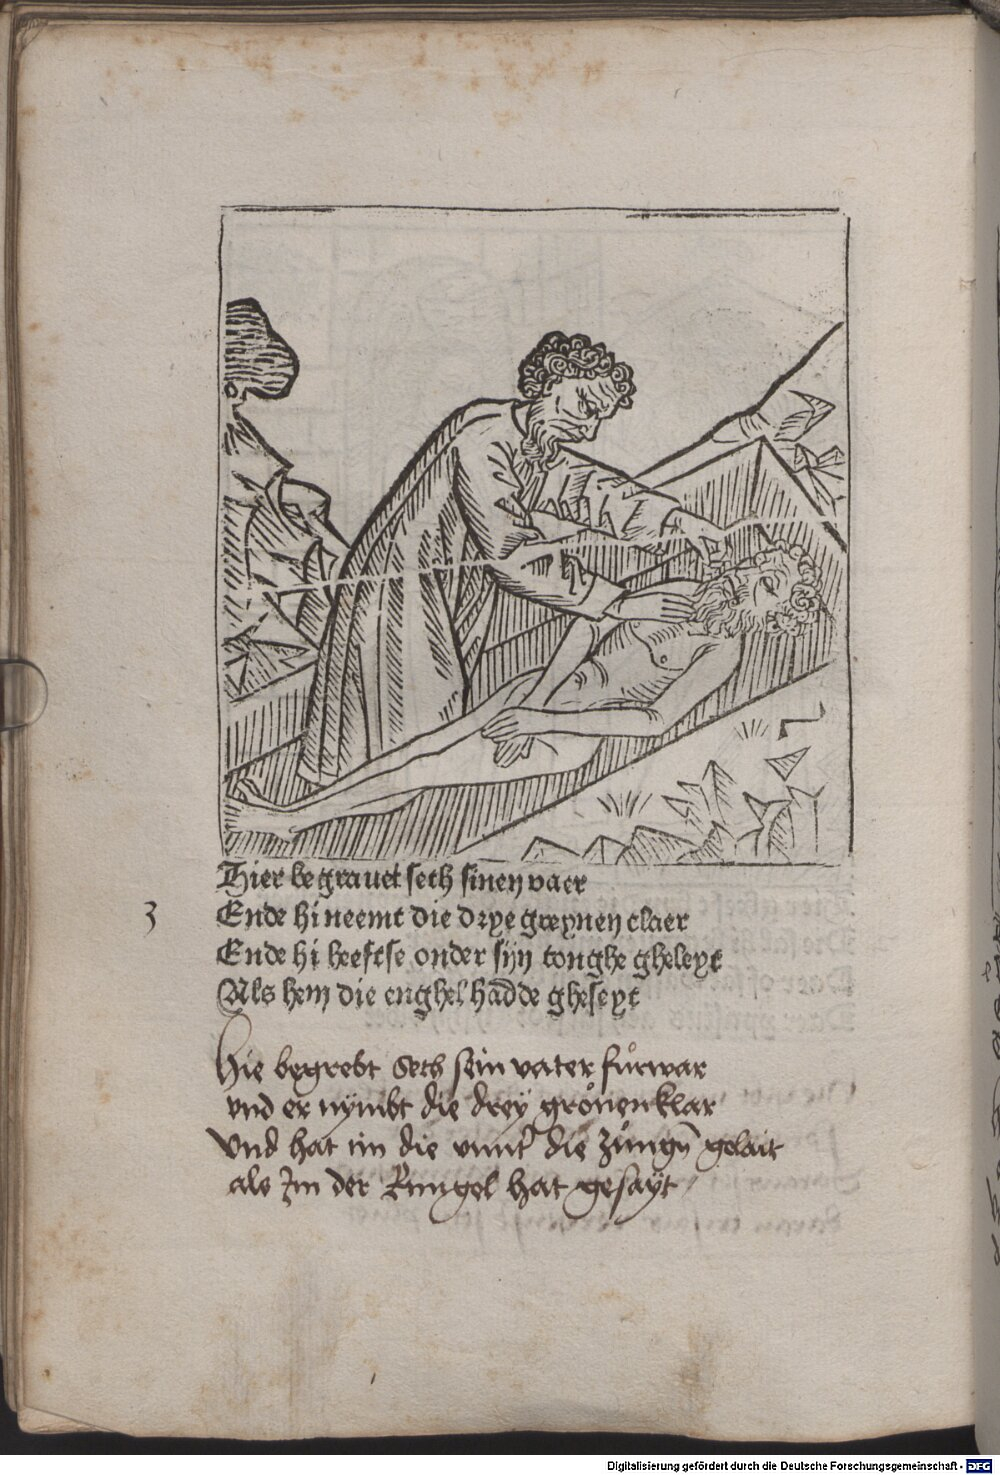 Thier begrauet seth sinen vaer
3
Ende hi neemt die drye greynen claer
Ende hi heeftse onder sijn tonghe gheleyt
Als hem die enghel hadde gheseyt
Hie begrebt Seth sein vater fürwar
vnd er nÿmbt die dreÿ grönen klar
Vnd hat im die vnnter die Züngn gelait
als Im der Enngel hat gesaÿt
Digitalisierung gefördert durch die Deutsche Forschungsgemeinschaft - DFG